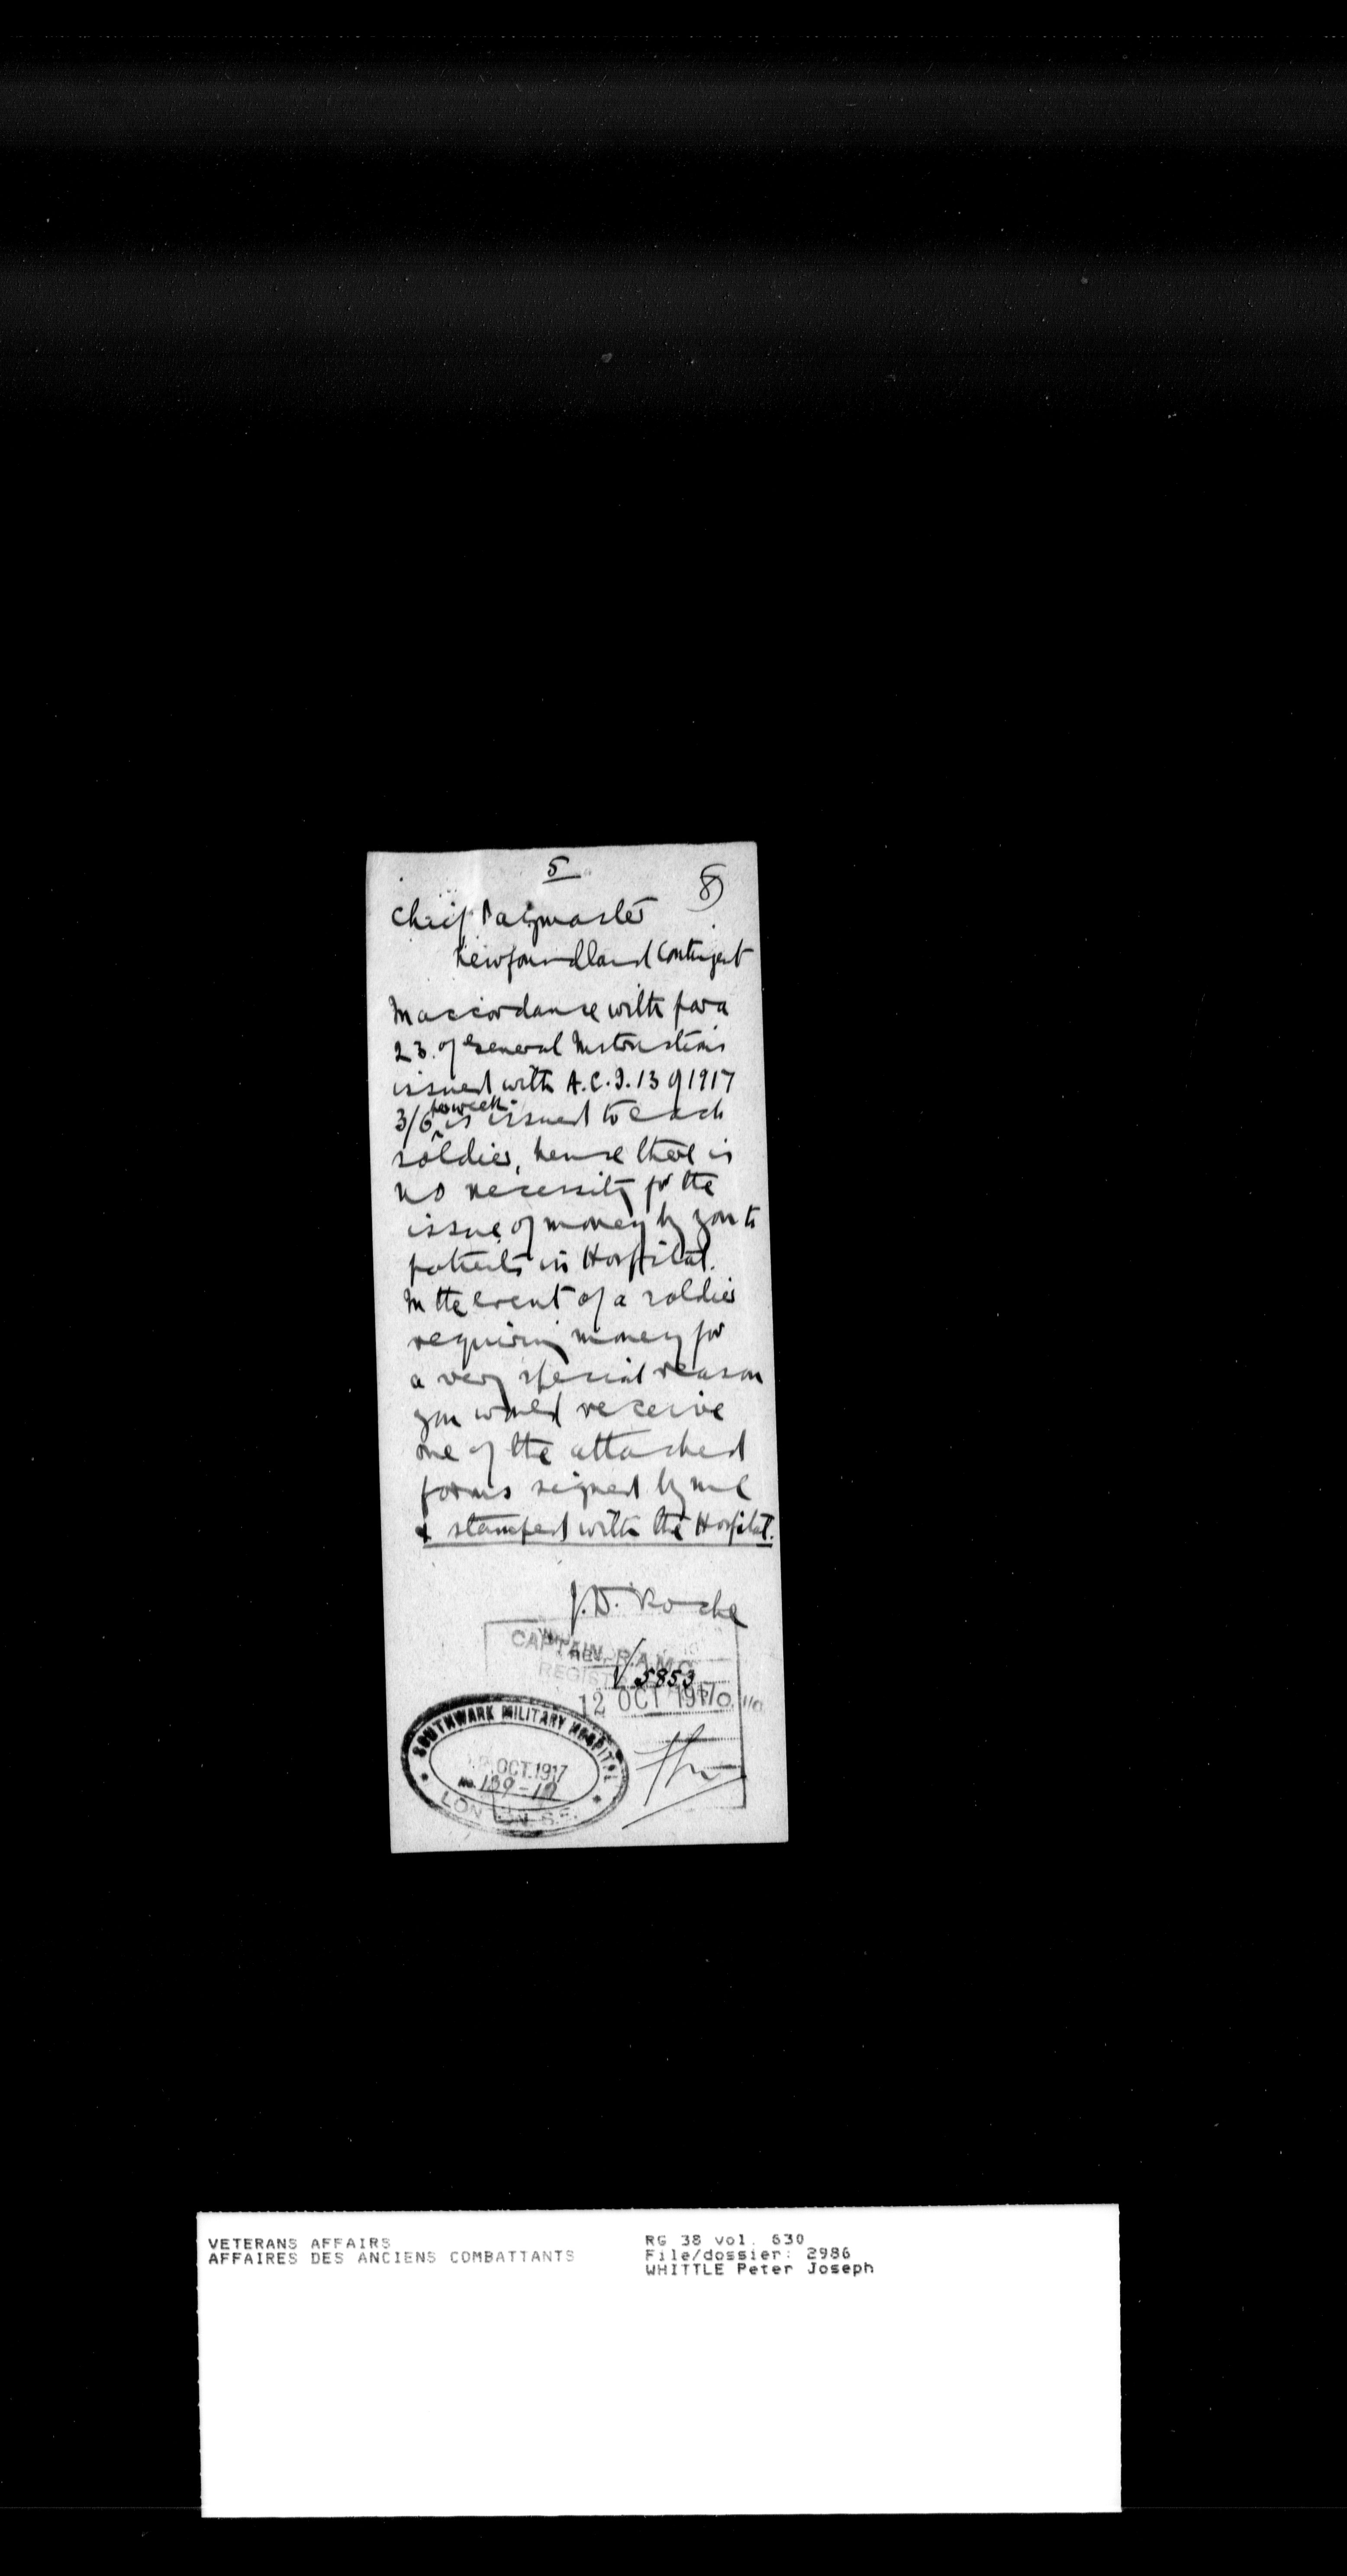 5
8
Chief Paymaster
Newfoundland Contingent
In accordance with para
23. of General Instructions
issued with A.C.I. 13 of 1917
3/6 per week is issued to each
soldier, hence there is
no necessity for the
issue of money by you to
patients in Hospital.
In the event of a soldier
requiring money for
a very special reason
you would receive
one of the attached
forms signed by me
& stamped with the Hospital.
J.D. Roche
CAPTAIN, R.A.M.C.
REGISTRAR
5853
12 OCT 1917
SOUTHWARK MILITARY HOSPITAL
OCT. 1917
No. 139-19
LONDON S.E.
VETERANS AFFAIRS
AFFAIRES DES ANCIENS COMBATTANTS
RG 38 vol. 630
File/dossier: 2986
WHITTLE Peter Joseph